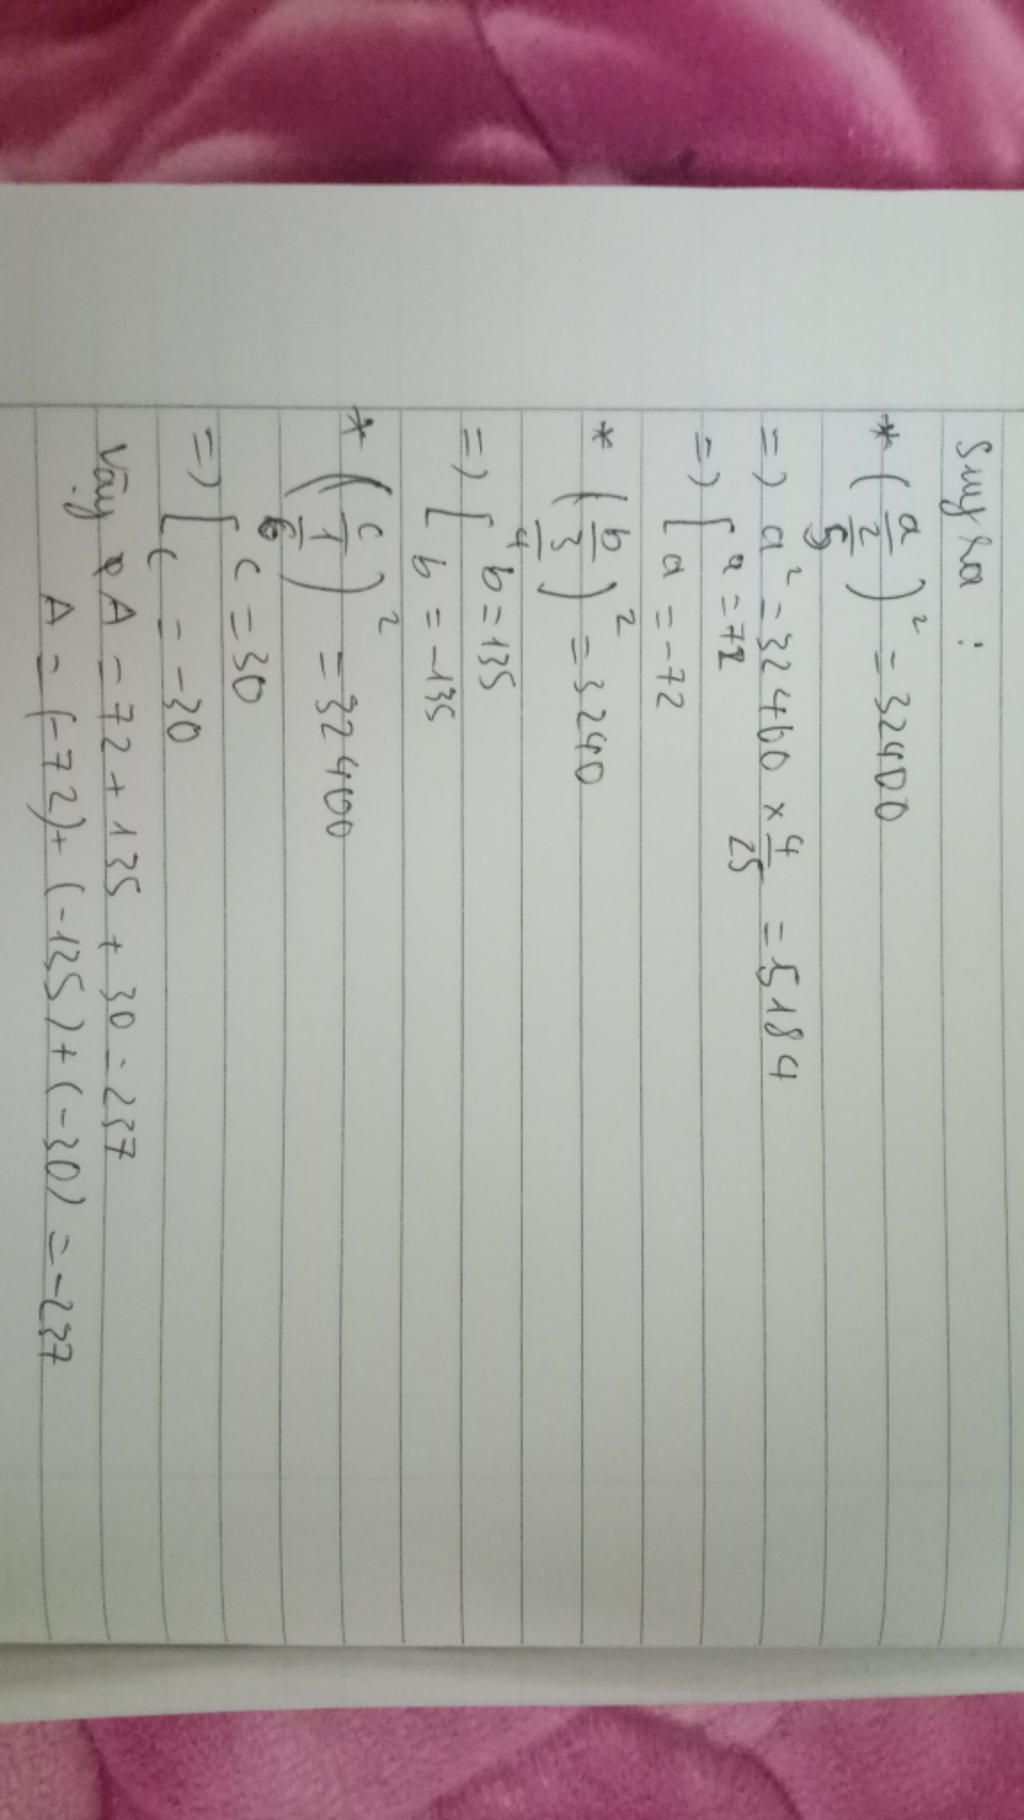 Suy ra :
* (a/2/5)² = 32400
=> a² = 32400 × 4/25 = 5184
=> [ a = 72
a = -72
* (b/3/4)² = 3240
=> [ b = 135
b = -135
* (c/1/6)² = 32400
=> [ c = 30
c = -30
Vậy A = 72 + 135 + 30 = 237
A = (-72) + (-135) + (-30) = -237